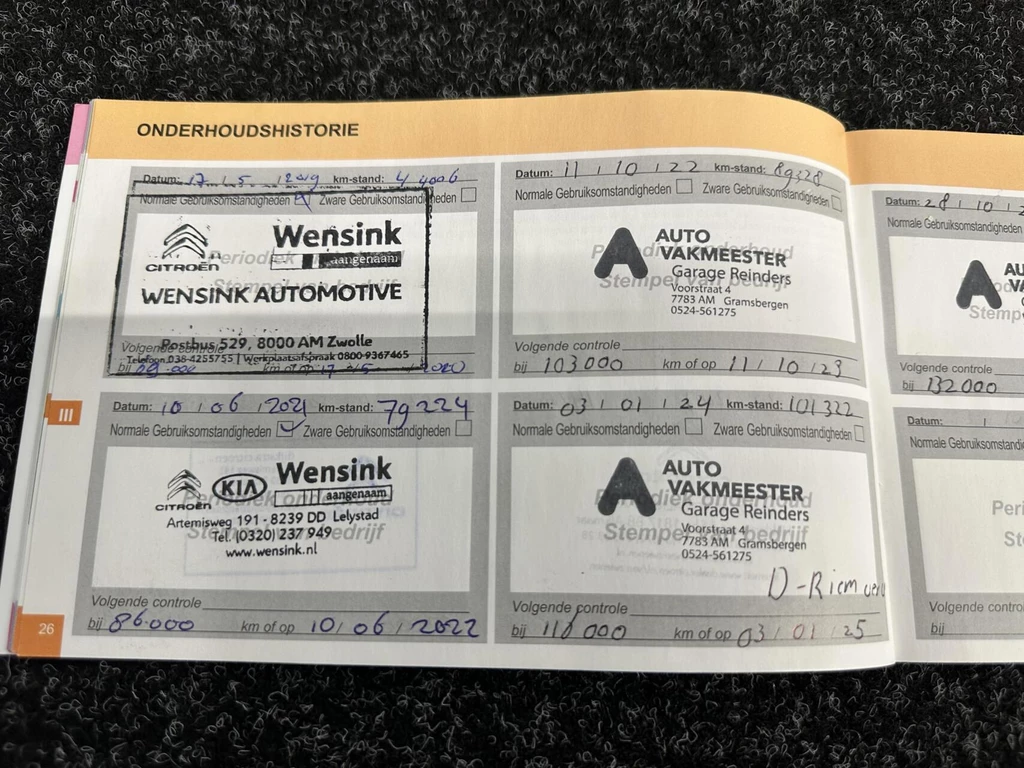 ONDERHOUDSHISTORIE
Datum: 17 / 5 / 2019 km-stand: 44006
Normale Gebruiksomstandigheden Zware Gebruiksomstandigheden
Periodiek
CITROËN
Wensink
aangenaam
WENSINK AUTOMOTIVE
Stempel van bedrijf
Postbus 529, 8000 AM Zwolle
Volgende controle
Telefoon 038-4255755 | Werkplaatsafspraak 0800-9367465
bij km of op 17 / 5 / 2020
Datum: 10 / 06 / 2021 km-stand: 79224
Normale Gebruiksomstandigheden Zware Gebruiksomstandigheden
CITROËN KIA Wensink
aangenaam
Periodiek onderhoud
Artemisweg 191 - 8239 DD Lelystad
Stempel van bedrijf
Tel. (0320) 237 949
www.wensink.nl
Volgende controle
bij 86.000 km of op 10 / 06 / 2022
26
III
Datum: 11 / 10 / 22 km-stand: 89328
Normale Gebruiksomstandigheden Zware Gebruiksomstandigheden
AUTO
VAKMEESTER
Periodiek onderhoud
Garage Reinders
Stempel van bedrijf
Voorstraat 4
7783 AM Gramsbergen
0524-561275
Volgende controle
bij 103000 km of op 11 / 10 / 23
Datum: 03 / 01 / 24 km-stand: 101322
Normale Gebruiksomstandigheden Zware Gebruiksomstandigheden
AUTO
VAKMEESTER
Periodiek onderhoud
Garage Reinders
Stempel van bedrijf
Voorstraat 4
7783 AM Gramsbergen
0524-561275
D-Riem
Volgende controle
bij km of op 03 / 01 / 25
Datum: 28 / 10 / 2
Normale Gebruiksomstandigheden
AU
VA
Stemp
Volgende controle
bij 132000
Datum: / /
Normale Gebruiksomstandigheden
Peri
St
Volgende contro
bij